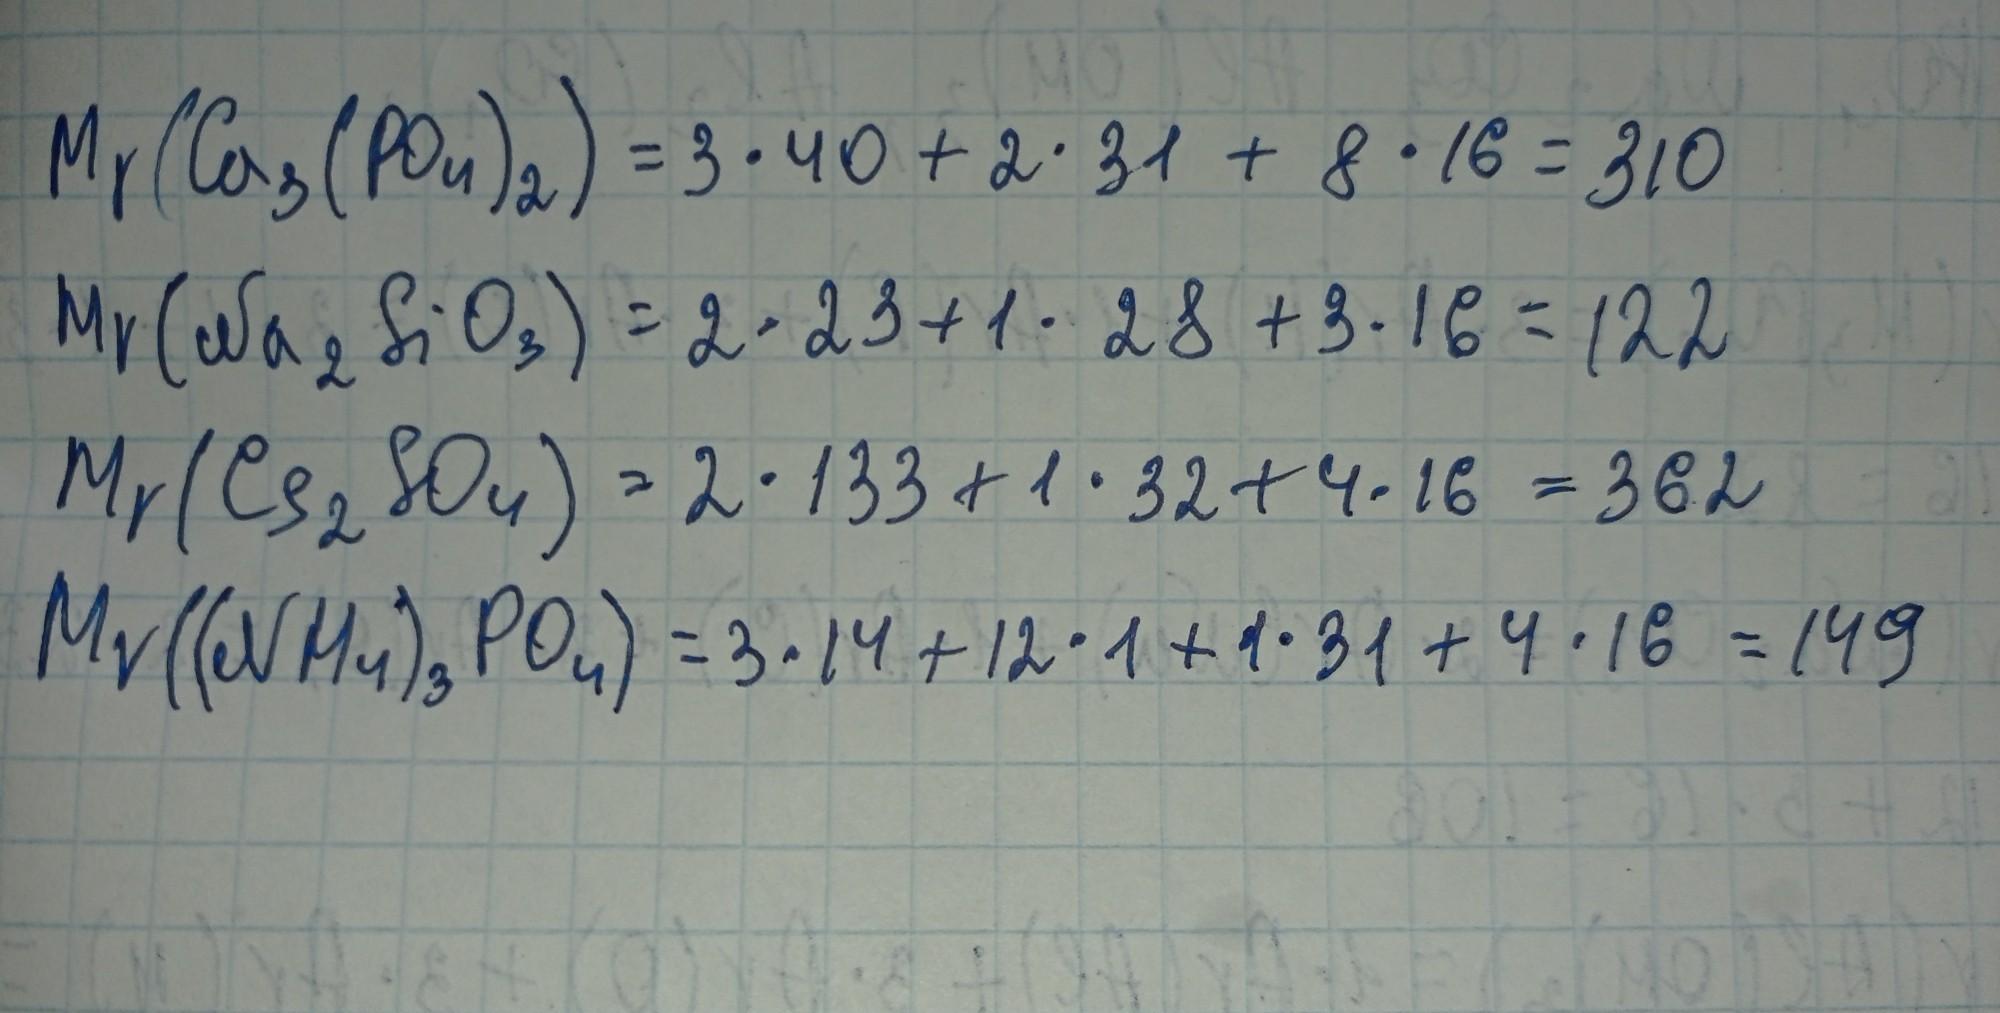 Mr(Ca₃(PO₄)₂) = 3·40 + 2·31 + 8·16 = 310
Mr(Na₂SiO₃) = 2·23 + 1·28 + 3·16 = 122
Mr(Cs₂SO₄) = 2·133 + 1·32 + 4·16 = 362
Mr((NH₄)₃PO₄) = 3·14 + 12·1 + 1·31 + 4·16 = 149